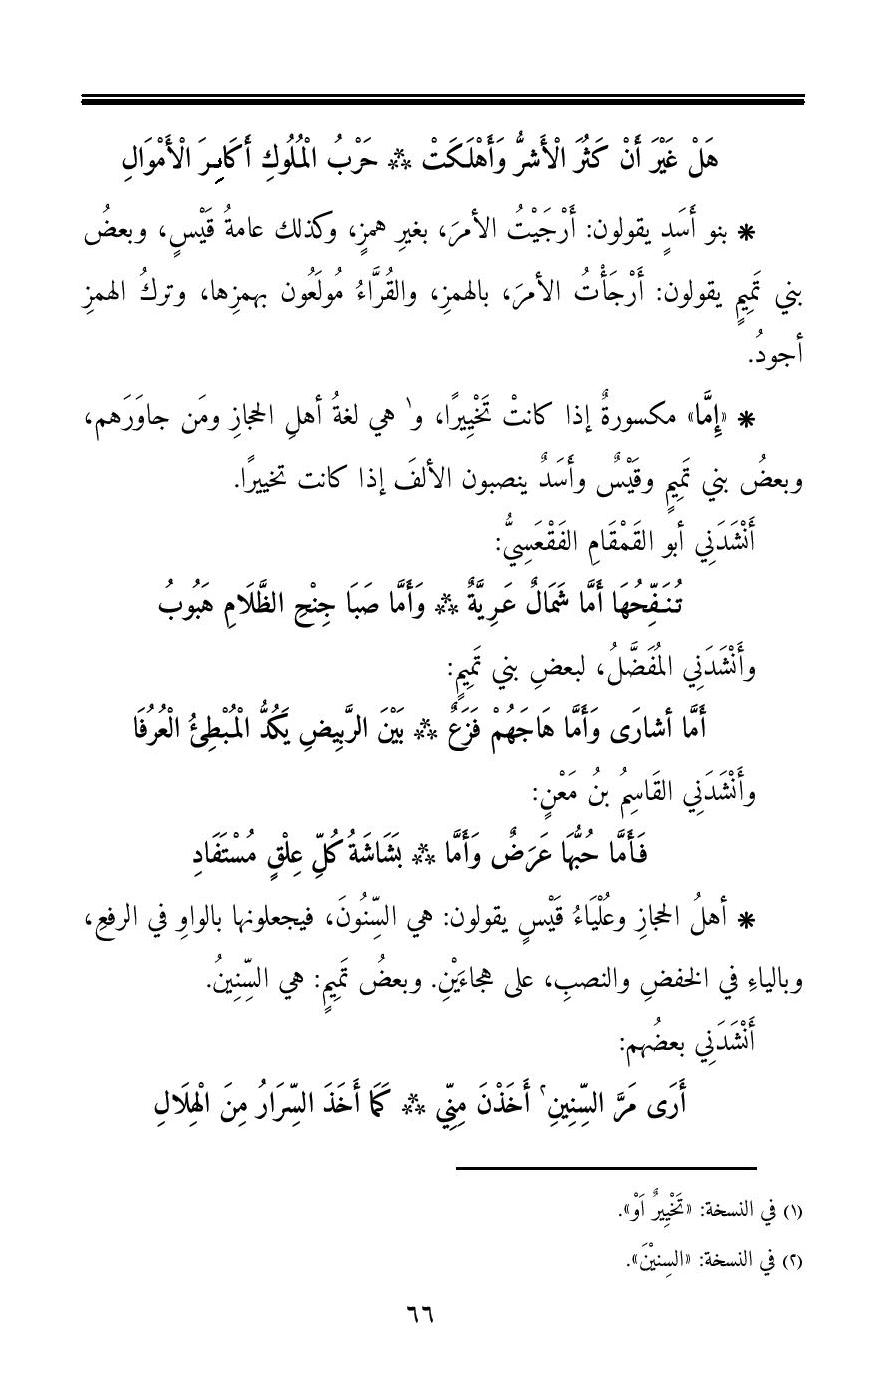 هَلْ غَيْرَ أَنْ كَثُرَ الْأَشرُّ وَأَهْلَكَتْ ⁂ حَرْبُ الْمُلُوكِ أَكَابِرَ الْأَمْوَالِ
* بنو أَسَدٍ يقولون: أَرْجَيْتُ الأمرَ، بغيرِ همزٍ، وكذلك عامةُ قَيْسٍ، وبعضُ
بني تَمِيمٍ يقولون: أَرْجَأْتُ الأمرَ، بالهمزِ، والقُرَّاءُ مُولَعُون بهمزِها، وتركُ الهمزِ
أجودُ.
* «إِمَّا» مكسورةٌ إذا كانتْ تَخْيِيرًا، و١ هي لغةُ أهلِ الحجازِ ومَن جاوَرَهم،
وبعضُ بني تَمِيمٍ وقَيْسٌ وأَسَدٌ ينصبون الألفَ إذا كانت تخييرًا.
أَنْشَدَنِي أبو القَمْقَامِ الفَقْعَسِيُّ:
تُنَفِّحُهَا أَمَّا شَمَالٌ عَرِيَّةٌ ⁂ وَأَمَّا صَبَا جِنْحِ الظَّلَامِ هَبُوبُ
وأَنْشَدَنِي المُفَضَّلُ، لبعضِ بني تَمِيمٍ:
أَمَّا أشارَى وَأَمَّا هَاجَهُمْ فَزَعٌ ⁂ بَيْنَ الرَّبِيضِ يَكُدُّ الْمُبْطِئُ الْعُرُفَا
وأَنْشَدَنِي القَاسِمُ بنُ مَعْنٍ:
فَأَمَّا حُبُّهَا عَرَضٌ وَأَمَّا ⁂ بَشَاشَةُ كُلِّ عِلْقٍ مُسْتَفَادِ
* أهلُ الحجازِ وعُلْيَاءُ قَيْسٍ يقولون: هي السِّنُونَ، فيجعلونها بالواوِ في الرفعِ،
وبالياءِ في الخفضِ والنصبِ، على هجاءَيْنِ. وبعضُ تَمِيمٍ: هي السِّنِينُ.
أَنْشَدَنِي بعضُهم:
أَرَى مَرَّ السِّنِينِ٢ أَخَذْنَ مِنِّي ⁂ كَمَا أَخَذَ السِّرَارُ مِنَ الْهِلَالِ
(١) في النسخة: «تَخْيِيرٌ اَوْ».
(٢) في النسخة: «السِنيْنَ».
٦٦